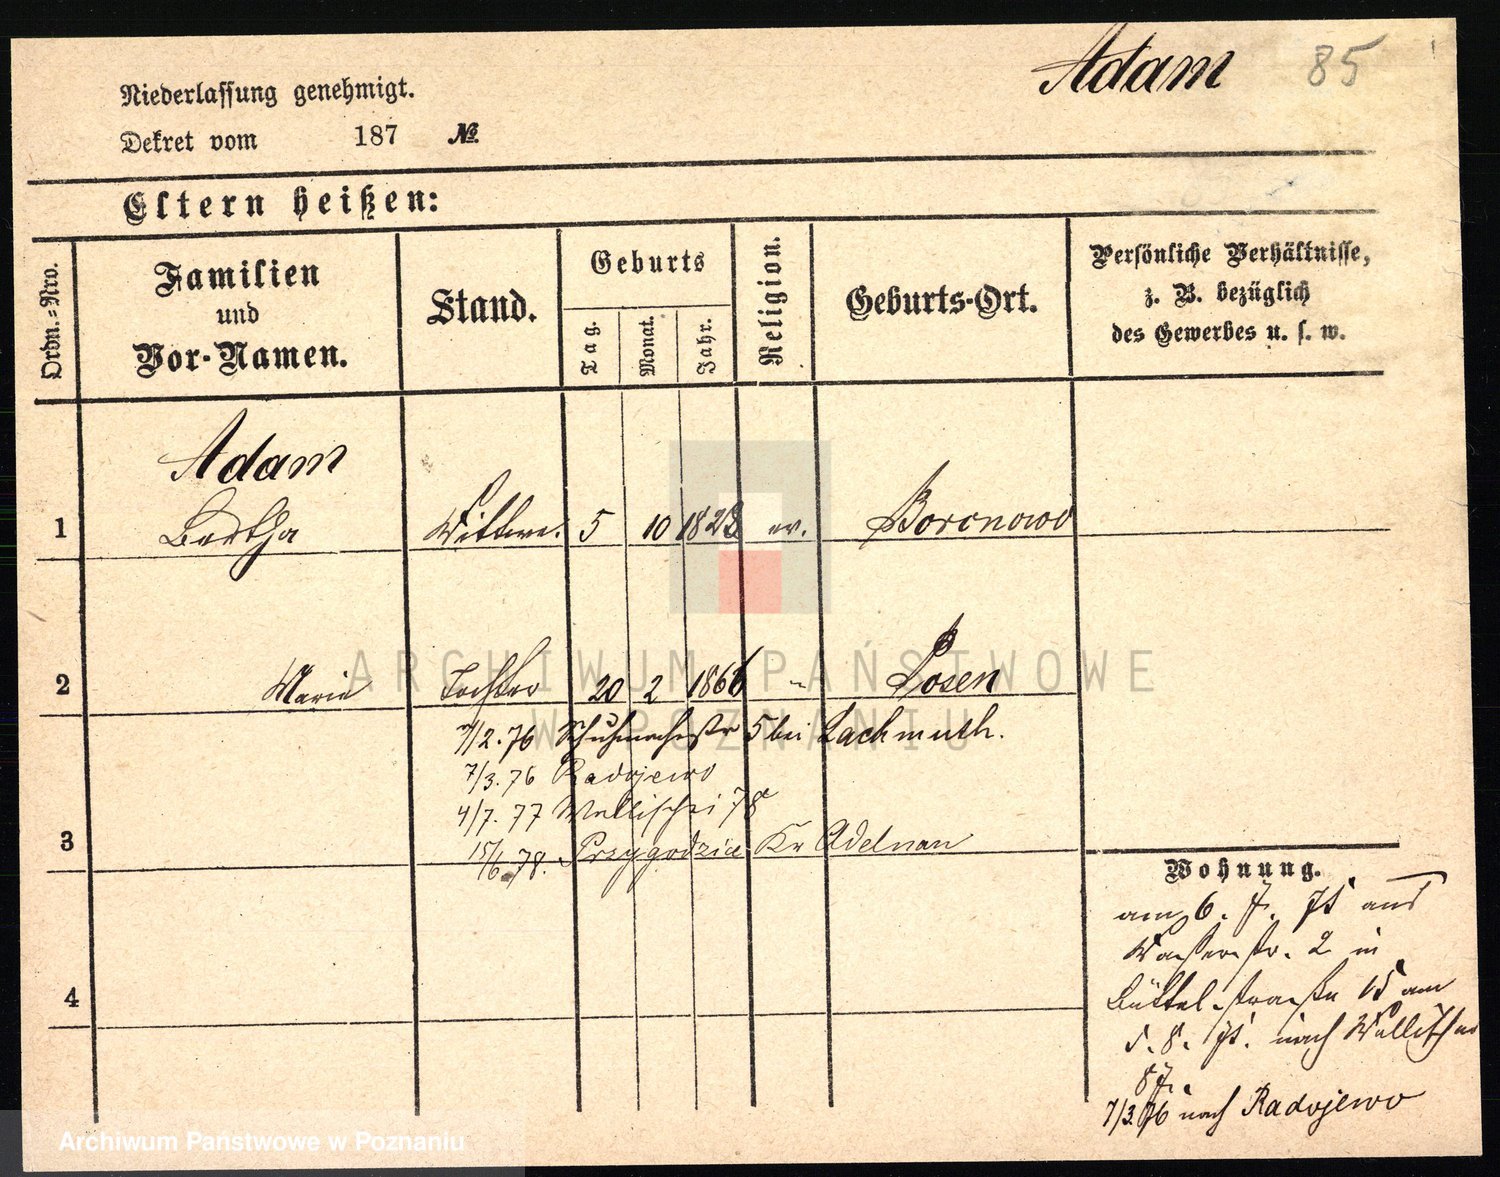 Adam 85
Niederlassung genehmigt.
Dekret vom 187 №
Eltern heißen:
Ordn.=Nro.
Familien
und
Vor-Namen.
Stand.
Geburts
Tag.
Monat.
Jahr.
Religion.
Geburts-Ort.
Persönliche Verhältnisse,
z. B. bezüglich
des Gewerbes u. s. w.
Adam
1 Bertha Wittwe. 5 10 1823 ev. Borcnowo
2 Marie Tochter 20 2 1866 " Posen
7/2.76 Schuhmacherstr 5 bei Lachmuth.
7/3.76 Radojewo
4/7.77 Wallischei 78
15/6.78. Przygodzice Kr Adelnau
3
Wohnung.
am 6. 7. 75 aus
Wasserstr. 2 in
Büttelstraße 15 am
5. 8. 75. nach Wallischei
87.
7/3.76 nach Radojewo
4
ARCHIWUM PAŃSTWOWE
W POZNANIU
Archiwum Państwowe w Poznaniu